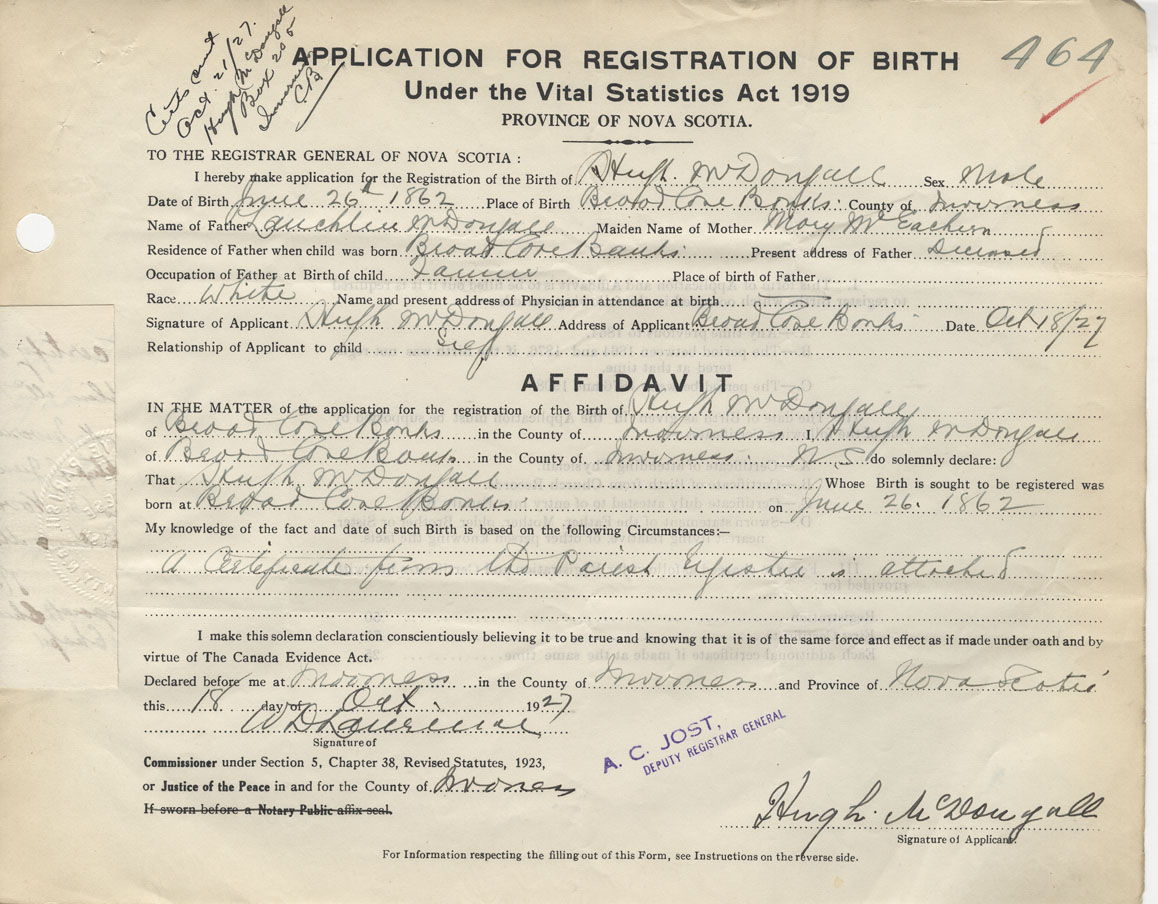 Certs sent
Oct. 21/27.
Hugh McDougall
Box 205
Inverness
C.B.
464
APPLICATION FOR REGISTRATION OF BIRTH
Under the Vital Statistics Act 1919
PROVINCE OF NOVA SCOTIA.
TO THE REGISTRAR GENERAL OF NOVA SCOTIA :
I hereby make application for the Registration of the Birth of Hugh McDougall Sex Male
Date of Birth June 26th 1862 Place of Birth Broad Cove Banks County of Inverness
Name of Father Lauchlin McDougall Maiden Name of Mother Mary McEachern
Residence of Father when child was born Broad Cove Banks Present address of Father Deceased
Occupation of Father at Birth of child Farmer Place of birth of Father
Race White Name and present address of Physician in attendance at birth
Signature of Applicant Hugh McDougall Address of Applicant Broad Cove Banks Date Oct 18/27
Relationship of Applicant to child Self
AFFIDAVIT
IN THE MATTER of the application for the registration of the Birth of Hugh McDougall
of Broad Cove Banks in the County of Inverness I, Hugh McDougall
of Broad Cove Banks in the County of Inverness. N.S. do solemnly declare:
That Hugh McDougall Whose Birth is sought to be registered was
born at Broad Cove Banks on June 26. 1862
My knowledge of the fact and date of such Birth is based on the following Circumstances:—
A Certificate from the Parish Register is attached
I make this solemn declaration conscientiously believing it to be true and knowing that it is of the same force and effect as if made under oath and by
virtue of The Canada Evidence Act.
Declared before me at Inverness in the County of Inverness and Province of Nova Scotia
this 18 day of Oct. 1927
W D Lawrence
Signature of
Commissioner under Section 5, Chapter 38, Revised Statutes, 1923,
or Justice of the Peace in and for the County of Inverness
If sworn before a Notary Public affix seal.
A. C. JOST,
DEPUTY REGISTRAR GENERAL
Hugh McDougall
Signature of Applicant.
For Information respecting the filling out of this Form, see Instructions on the reverse side.